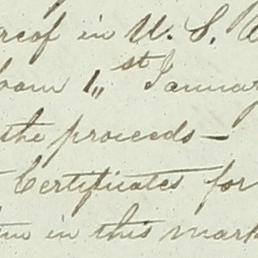 in U. S.
1st Januar
the proceeds—
Certificates for
in this mark